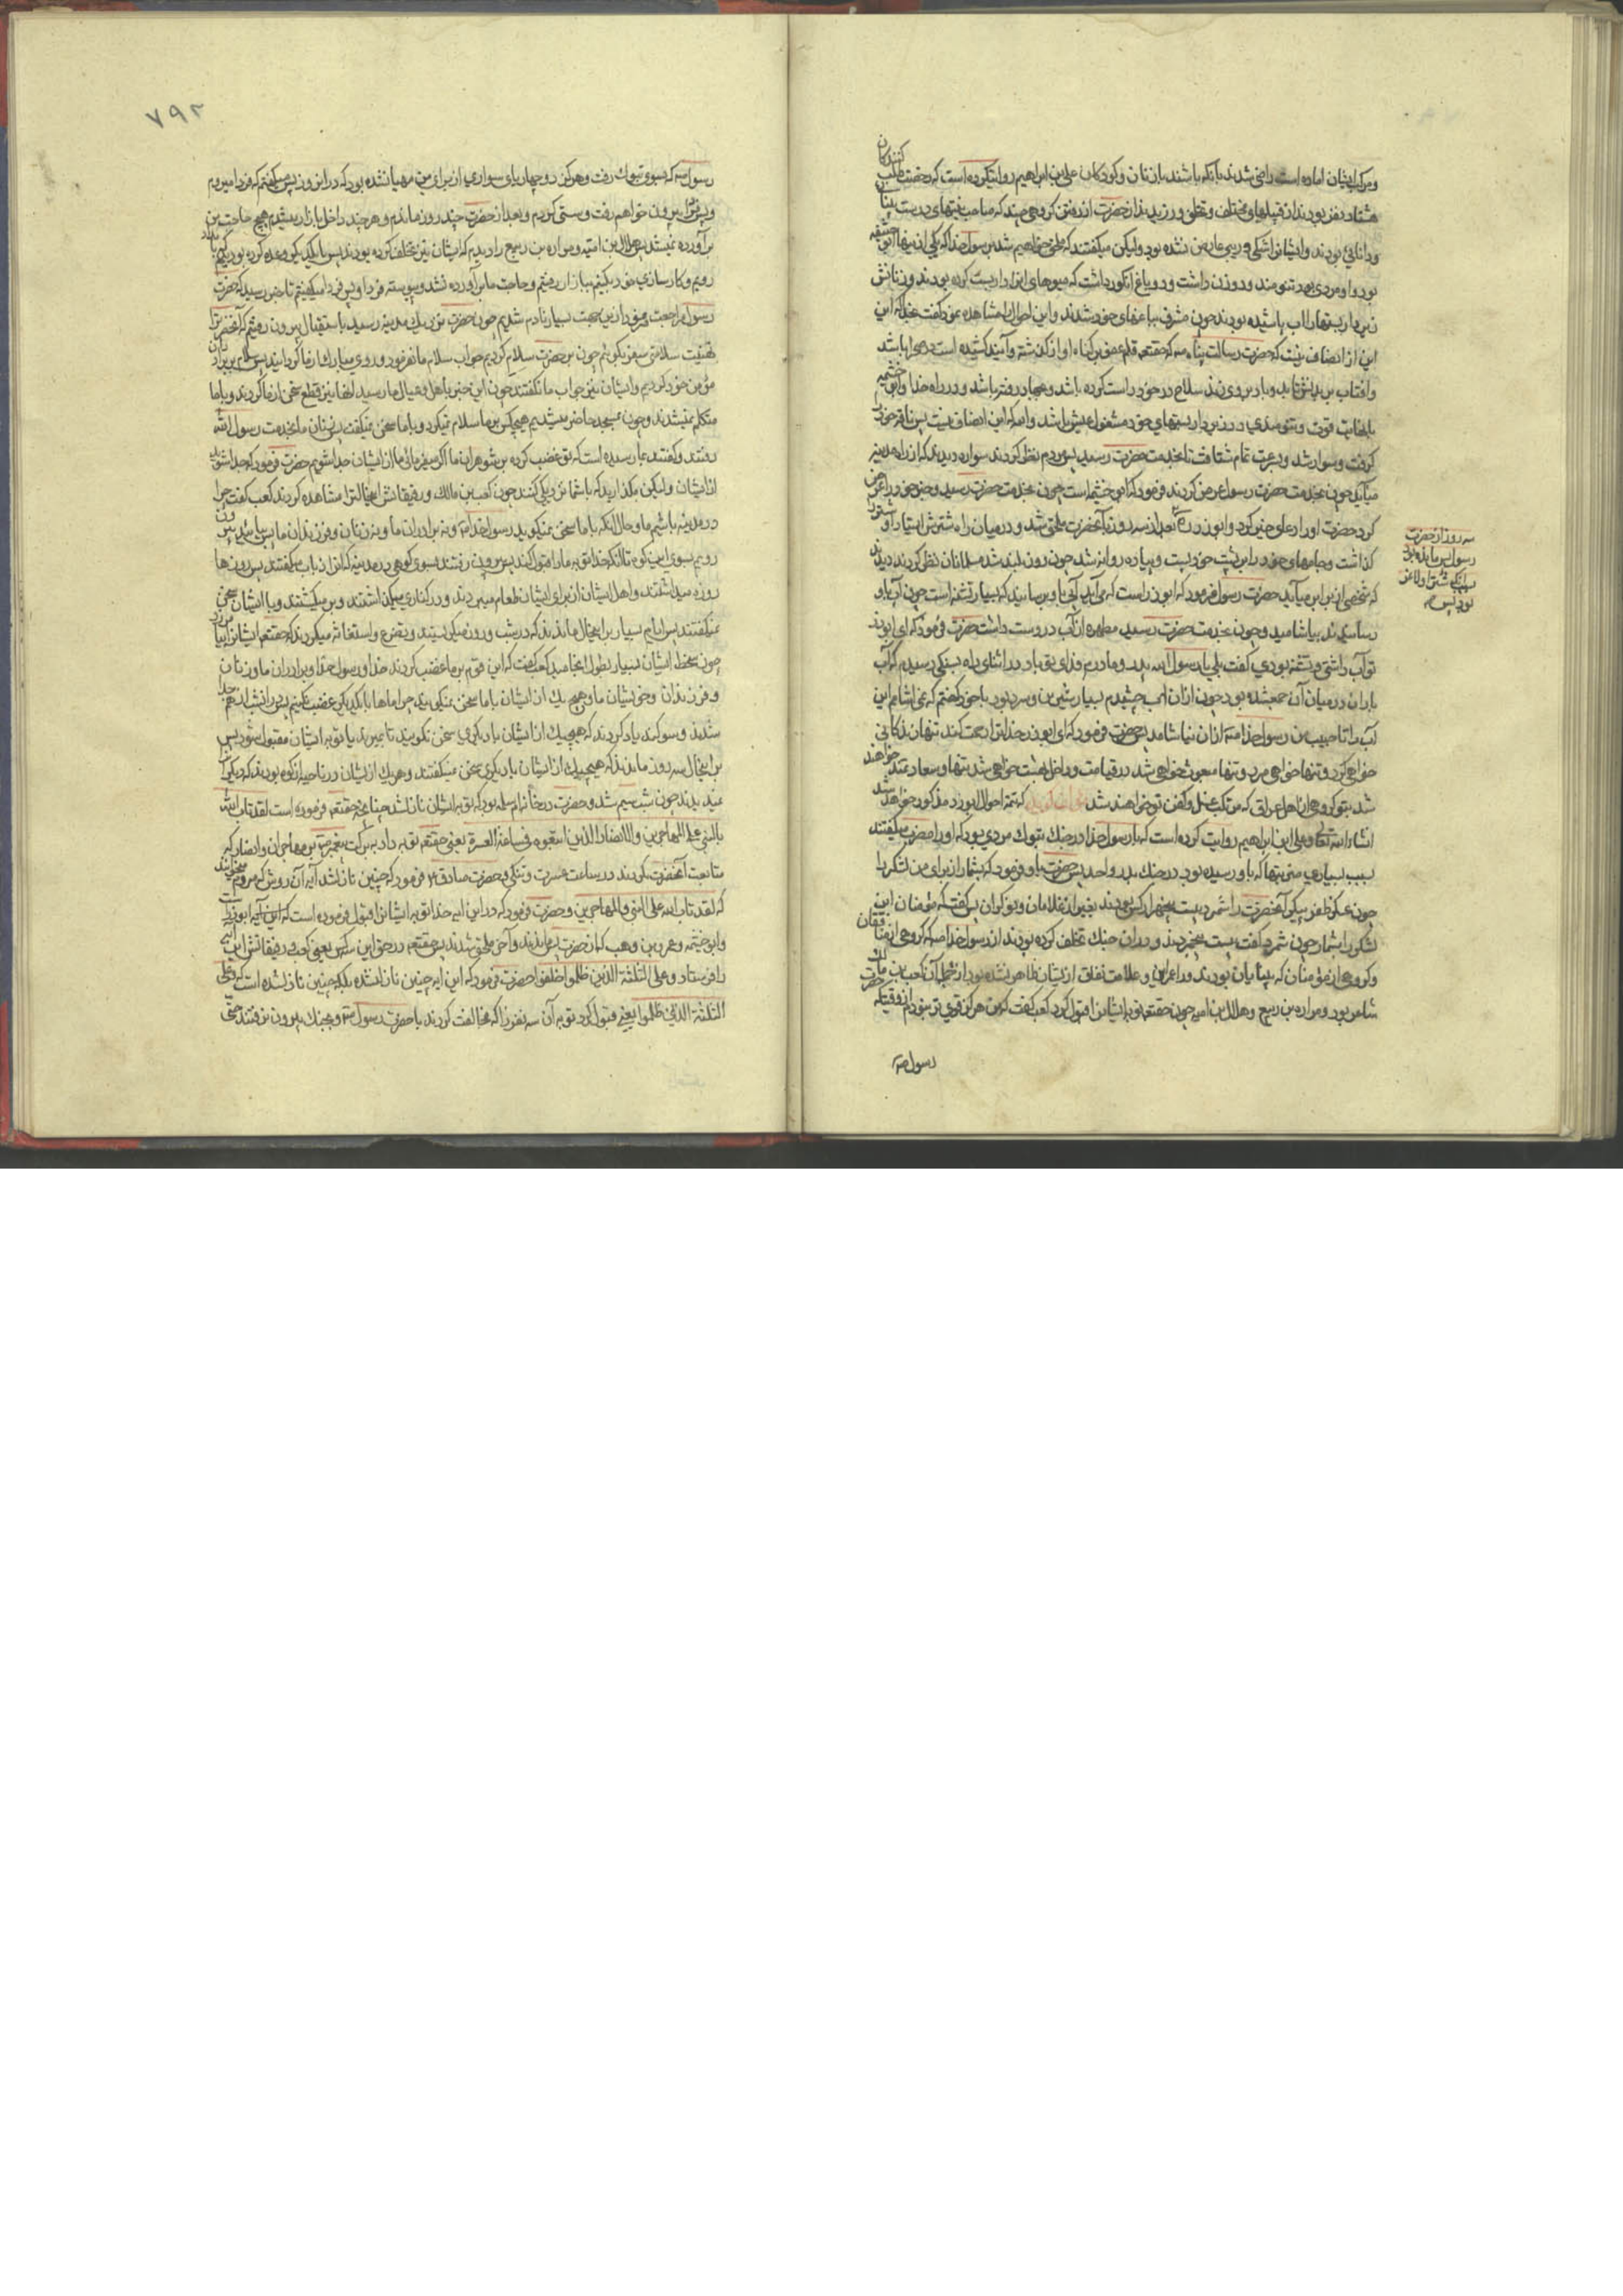 کنندگان
و مرکب ایشان اماده است راضی شدند بآنکه باشند با زنان و کودکان علی بن ابراهیم روایتکرده است که حضرت طلب
هشتاد نفر بودند از قبیلهای مختلف و تخلف ورزیدند از حضرت از رفتن گروهی چند که صاحب نیتهای درست
و دانائی بودند و ایشانرا شکی و ریبی عارض نشده بود ولیکن میگفتند که ملحق خواهیم شد برسول خدا که یکی از ینها ابو خثیمه
بود و او مردی بود تنومند و دو زن داشت و دو باغ انگور داشت که میوهای انرا داربست کرده بودند و زنانش
زیر داربستها را اب پاشیده بودند چون مشرف بباغهای خود شدند و این احوالرا مشاهده نمود گفت بخدا که این
این از انصاف نیست که حضرت رسالت پناه صه که حقتعالی قلم عفو بر گناه او از گذشته و آینده کشیده است در صحرا باشد
و افتاب بر بدنش تابد و باد بر وی زند سلاح در خود راست کرده باشد و بجهاد رفته باشد و در راه خدا و ابو خثیمه
با نهایت قوت و تنومندی در زیر داربستهای خود مشغول عیش باشد والله که این انصاف نیست پس ناقه خود
گرفت و سوار شد و بسرعت تمام شتافت تا بخدمت حضرت رسید پس مردم نظر کردند سواره دیدند که از راه مدینه
میآید چون بخدمت حضرت رسول عرض کردند فرمود که ابو خثیمه است چون بخدمت حضرت رسید و خبر خود را عرض
کرد حضرت او را دعای خیر کرد و ابوذر بعد از سه روز بآنحضرت ملحق شد و در میان راه شترش ایستاد او را
سه روز از حضرت
رسول پس مانده بود
برای آنکه شتر او لاغر
بود پس صه
گذاشت و جامهای خود را بر پشت خود بست و پیاده روانه شد چون روز بلند شد مسلمانان نظر کردند دیدند
که شخصی از برابر میآید حضرت رسول فرمود که ابوذر است که می‌آید آبی باو برسانید که بسیار تشنه است چون آب باو
رسانیدند بیاشامید و چون بخدمت حضرت رسید مطهره از آب در دست داشت حضرت فرمود که ای ابوذر
تو آب داشتی و تشنه بودی گفت بلی یا رسول الله پدر و مادرم فدای تو باد در اثنای راه بسنگی رسیدم که آب
باران در میان آن جمع شده بود چون ازان اب چشیدم بسیار شیرین و سرد بود با خود گفتم که نمی اشامم این
آب را تا حبیب من رسول خدا صه ازان نیاشامد پس حضرت فرمود که ای ابوذر خدا ترا رحمت کند تنها زندگانی
خواهی کرد و تنها خواهی مرد و تنها مبعوث خواهی شد در قیامت و داخل بهشت خواهی شد تنها و سعادتمند خواهند
شد بتو گروهی از اهل عراق که مرتکب غسل و کفن تو خواهند شد که تتمه احوال ابوذر مذکور خواهد شد
انشاء الله تعالی و علی ابن ابراهیم روایت کرده است که با رسول خدا در جنگ تبوک مردی بود که او را مضرب میگفتند
بسبب بسیاری ضربتها که باو رسیده بود در جنک بدر و احد پس حضرت باو فرمود که بشمار از برای من لشکر را
چون عسکر ظفر پیکر آنحضرت را شمرد بیست و پنجهزار کس بودند بغیر از غلامان و نوکران پس گفت که مؤمنان این
لشکر را بشمار چون شمرد گفت بیست پنجمردند و دران جنک تخلف کرده بودند از رسول خدا صه گروهی از منافقان
و گروهی از مؤمنان که بینایان بودند در اعرابی و علامت نفاق از ایشان ظاهر نشده بود از جمله آن کعب بن مالک
شاعر بود و مراره بن ربیع و هلال بن امیه چون حقتعالی توبه ایشانرا قبول کرد کعب گفت که من هرگز قوی تر نبودم از وقتیکه حضرت
رسول صه
۷۹۲
رسول صه که بسوی تبوک رفت و هرگز دو چهارپای سواری از برای من مهیا نشده بود که در انروز پس میگفتم که فردا میروم
و پس فردا بیرون خواهم رفت و سستی کردم و بعد از حضرت چند روز ماندم و هر چند داخل بازار میشدم هیچ حاجت من
برآورده نمیشد پس هلال بن امیه و مراره بن ربیع را دیدم که ایشان نیز تخلف کرده بودند پس با یکدیگر وعده کردیم که ببازار
رویم و کارسازی خود بکنیم ببازار رفتیم و حاجت ما برآورده نشد و پیوسته فردا و پس فردا میگفتیم تا خبر رسید که حضرت
رسول مراجعت فرمود ازین جهت بسیار نادم شدیم چون حضرت نزدیک مدینه رسید باستقبال بیرون رفتیم که آنحضرت را
تهنیت سلامتی سفر بگوئیم چون بر حضرت سلام کردیم جواب سلام ما نفرمود و روی مبارک از ما گردانید پس سلام بر برادران
مؤمن خود کردیم و ایشان نیز جواب ما نگفتند چون این خبر باهل و عیال ما رسید انها نیز قطع سخن از ما کردند و با ما
متکلم نمیشدند و چون بمسجد حاضر میشدیم هیچکس بر ما سلام نمیکرد و با ما سخن نمیگفت پس زنان ما بخدمت رسول الله
رفتند و گفتند بما رسیده است که تو غضب کرده بر شوهران ما اگر میفرمائی ما از ایشان جدا شویم حضرت فرمود که جدا مشوید
از ایشان ولیکن مگذارید که با شما نزدیکی کنند چون کعب بن مالک و رفیقانش اینحالترا مشاهده کردند کعب گفت چرا
در مدینه باشیم ما و حال آنکه با ما سخن نمیگوید رسول خدا صه و نه برادران ما و نه زنان و فرزندان ما پس بیائید بیرون
رویم بسوی این کوه تا آنکه خدا توبه ما را قبول کند پس بیرون رفتند بسوی کوهی در مدینه که انرا ذباب میگفتند پس روزها
روزه میداشتند و اهل ایشان از برای ایشان طعام میبردند و در کناری میگذاشتند و بر میگشتند و با ایشان سخن
نمیگفتند پس ایام بسیار براینحال ماندند که در شب و روز میگریستند و تضرع و استغاثه میکردند که حقتعالی ایشانرا بیامرزد
چون سخط ایشان بسیار بطول انجامید کعب گفت که این قوم بر ما غضب کردند خدا و رسول خدا و برادران ما و زنان
و فرزندان و خویشان ما و هیچ یک از ایشان با ما سخن نمیگویند چرا ماها با یکدیگر غضب نکنیم پس در انشب از هم جدا
شدند و سوگند یاد کردند که هیچیک از ایشان با دیگری سخن نگویند تا بمیرند یا توبه ایشان مقبول شود پس
براینحال سه روز ماندند که هیچیک از ایشان با دیگری سخن نمیگفتند و هر یک از ایشان در ناحیه از کوه بودند که دیگریرا
نمیدیدند چون شب سیم شد و حضرت در خانه ام سلمه بود که توبه ایشان نازلشد چنانچه حقتعالی فرموده است لقد تاب الله
بالنبی علی المهاجرین والانصار الذین اتبعوه فی ساعة العسرة یعنی حقتعالی توبه داد ببرکت پیغمبر صه بر مهاجران و انصار که
متابعت آنحضرت کردند در ساعت عسرت و تنگی و حضرت صادق ع فرمود که چنین نازلشد آیه آن روش که مردم میخوانند
که لقد تاب الله علی النبی والمهاجرین و حضرت فرمود که در این ایه خدا توبه ایشانرا قبول فرموده است که این آیه ابوذر است
و ابو خثیمه و عمر بن وهب که از حضرت پس ماندند و آخر ملحق شدند پس حقتعالی در حق این سه کس یعنی کعب و رفیقانش این ایه
را فرستاد و علی الثلثة الذین خلفوا حضرت فرمود که این ایه چنین نازل نشده بلکه چنین نازلشده است که وعلی
الثلثة الذین خلفوا یعنی قبول کرد توبه آن سه نفر را که مخالفت کردند با حضرت رسول صه و بجنک بیرون نرفتند حتی